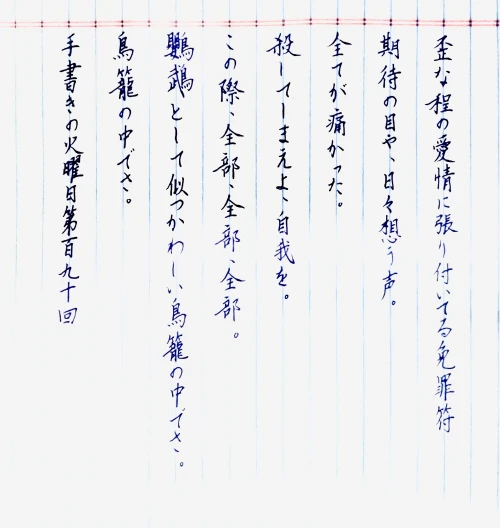 歪な程の愛情に張り付いてる免罪符
期待の目や、日々想う声。
全てが痛かった。
殺してしまえよ、自我を。
この際、全部、全部、全部。
鸚鵡として似つかわしい鳥籠の中でさ。
鳥籠の中でさ。
手書きの火曜日第百九十回